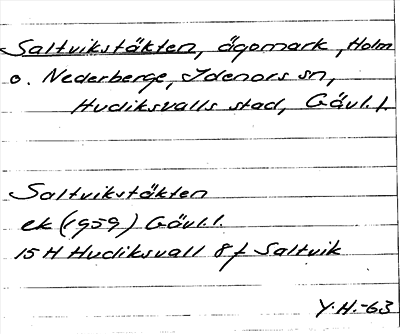 Saltvikstäkten, ägomark, Holm
o. Nederberge, Idenors sn,
Hudiksvalls stad, Gävl.l.
Saltvikstäkten
ek (1959) Gävl.l.
15 H Hudiksvall 8 f Saltvik
Y.H.-63